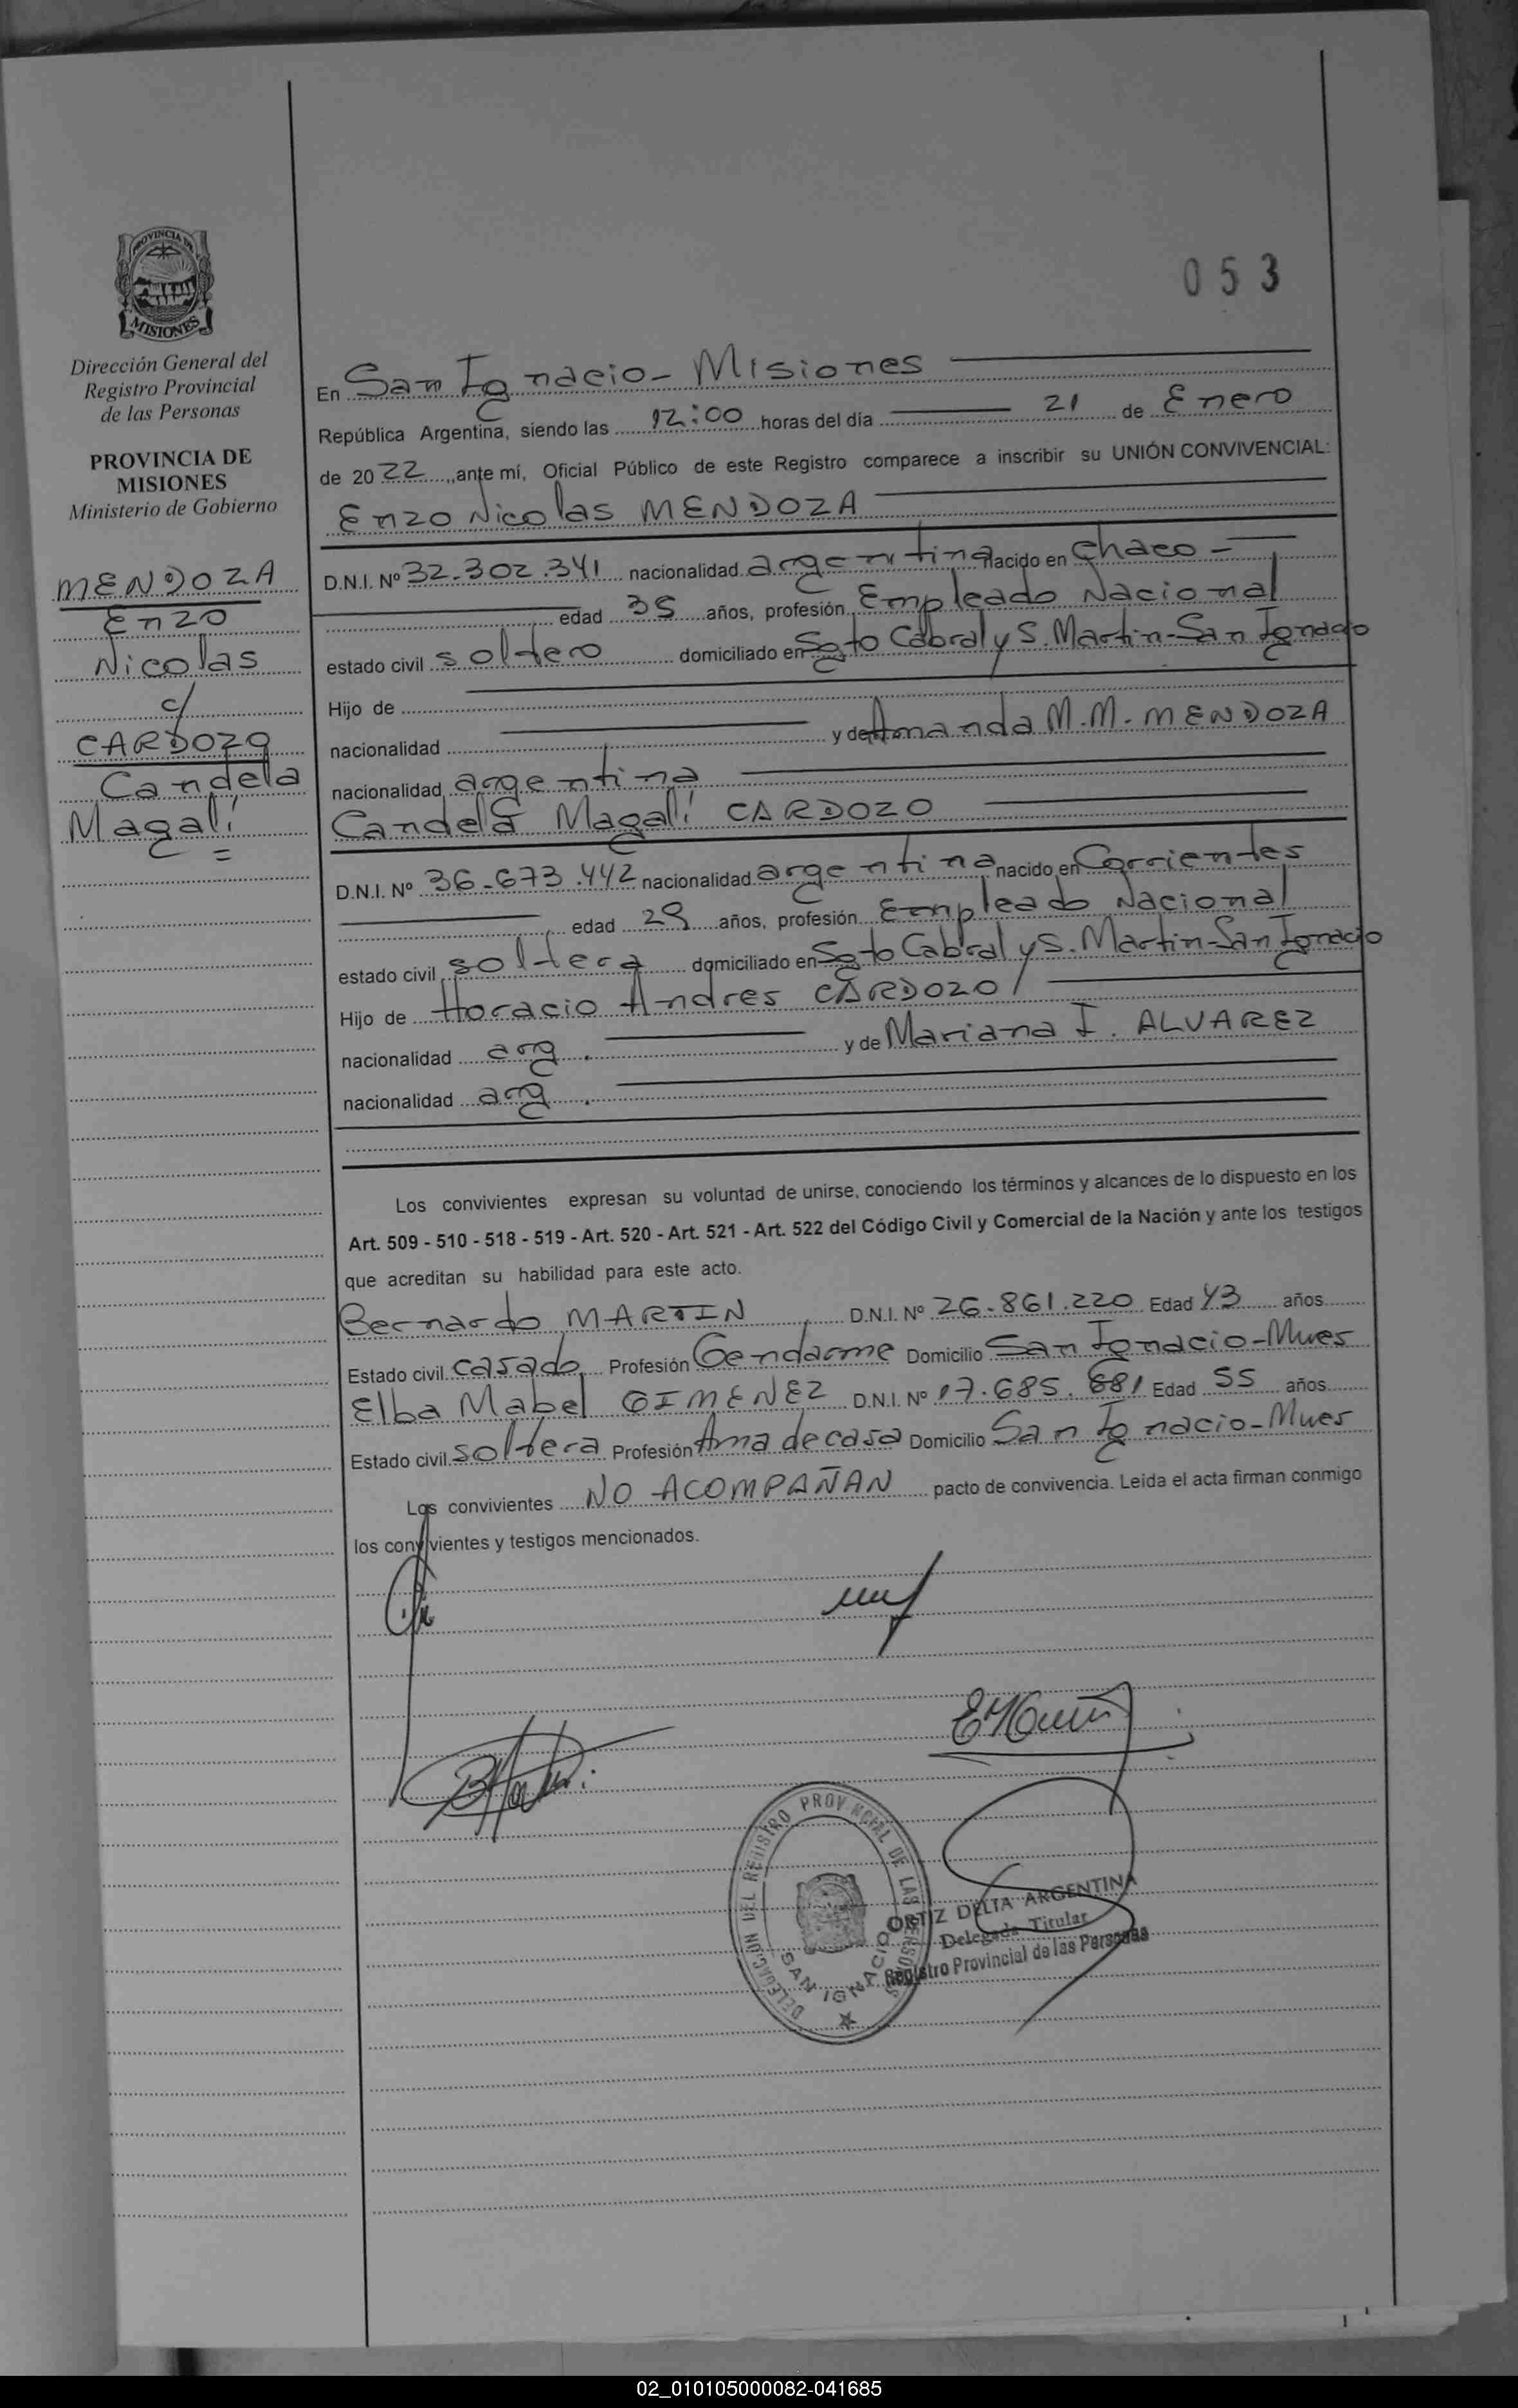 053
PROVINCIA DE
MISIONES
Dirección General del
Registro Provincial
de las Personas
PROVINCIA DE
MISIONES
Ministerio de Gobierno
MENDOZA
Enzo
Nicolas
c/
CARDOZO
Candela
Magalí
En San Ignacio - Misiones
República Argentina, siendo las 12:00 horas del día 21 de Enero
de 2022, ante mí, Oficial Público de este Registro comparece a inscribir su UNIÓN CONVIVENCIAL:
Enzo Nicolas MENDOZA
D.N.I. Nº 32.302.341 nacionalidad argentina nacido en Chaco -
edad 35 años, profesión Empleado Nacional
estado civil soltero domiciliado en Sgto Cabral y S. Martin - San Ignacio
Hijo de
nacionalidad y de Amanda M. M. MENDOZA
nacionalidad argentina
Candela Magalí CARDOZO
D.N.I. Nº 36.673.442 nacionalidad argentina nacido en Corrientes
edad 29 años, profesión Empleado Nacional
estado civil soltera domiciliado en Sgto Cabral y S. Martin - San Ignacio
Hijo de Horacio Andres CARDOZO
nacionalidad arg. y de Mariana I. ALVAREZ
nacionalidad arg.
Los convivientes expresan su voluntad de unirse, conociendo los términos y alcances de lo dispuesto en los
Art. 509 - 510 - 518 - 519 - Art. 520 - Art. 521 - Art. 522 del Código Civil y Comercial de la Nación y ante los testigos
que acreditan su habilidad para este acto.
Bernardo MARTIN D.N.I. Nº 26.861.220 Edad 43 años
Estado civil casado Profesión Gendarme Domicilio San Ignacio - Mnes
Elba Mabel GIMENEZ D.N.I. Nº 17.685.881 Edad 55 años
Estado civil soltera Profesión Ama de casa Domicilio San Ignacio - Mnes
Los convivientes NO ACOMPAÑAN pacto de convivencia. Leída el acta firman conmigo
los convivientes y testigos mencionados.
DELEGACIÓN DEL REGISTRO PROVINCIAL DE LAS PERSONAS
SAN IGNACIO
ORTIZ DELIA ARGENTINA
Delegada Titular
Registro Provincial de las Personas
02_010105000082-041685